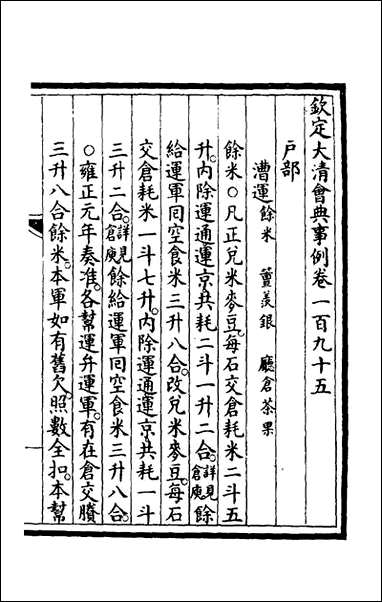 欽定大清會典事例卷一百九十五
戶部
漕運餘米 蓆羡銀 廳倉茶果
餘米○凡正兌米麥豆。每石交倉耗米二斗五
升。內除運通運京。共耗二斗一升二合。詳見倉庾餘
給運軍囘空食米三升八合。改兌米麥豆。每石
交倉耗米一斗七升。內除運通運京共耗一斗
三升二合。詳見倉庾餘給運軍囘空食米三升八合。
○雍正元年奏准。各幫運弁運軍。有在倉交賸
三升八合餘米。本軍如有舊欠。照數全扣。本幫